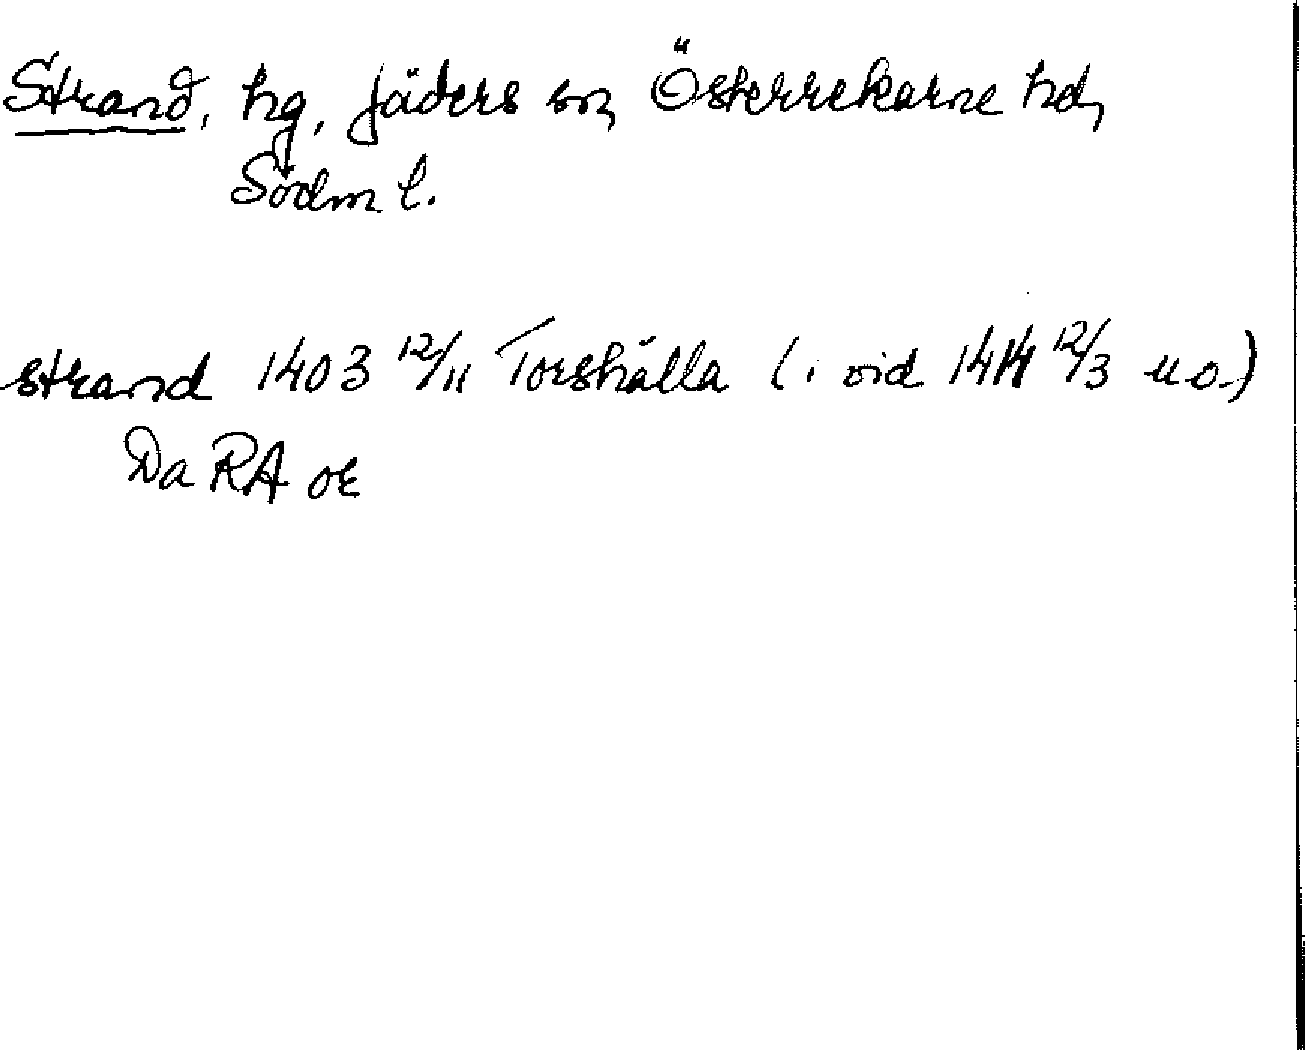 Strand, hg, Jäders sn, Österrekarne hd,
Södm l.
strand 1403 12/11 Torshälla (i vid 1414 12/3 u o.)
Da RA or